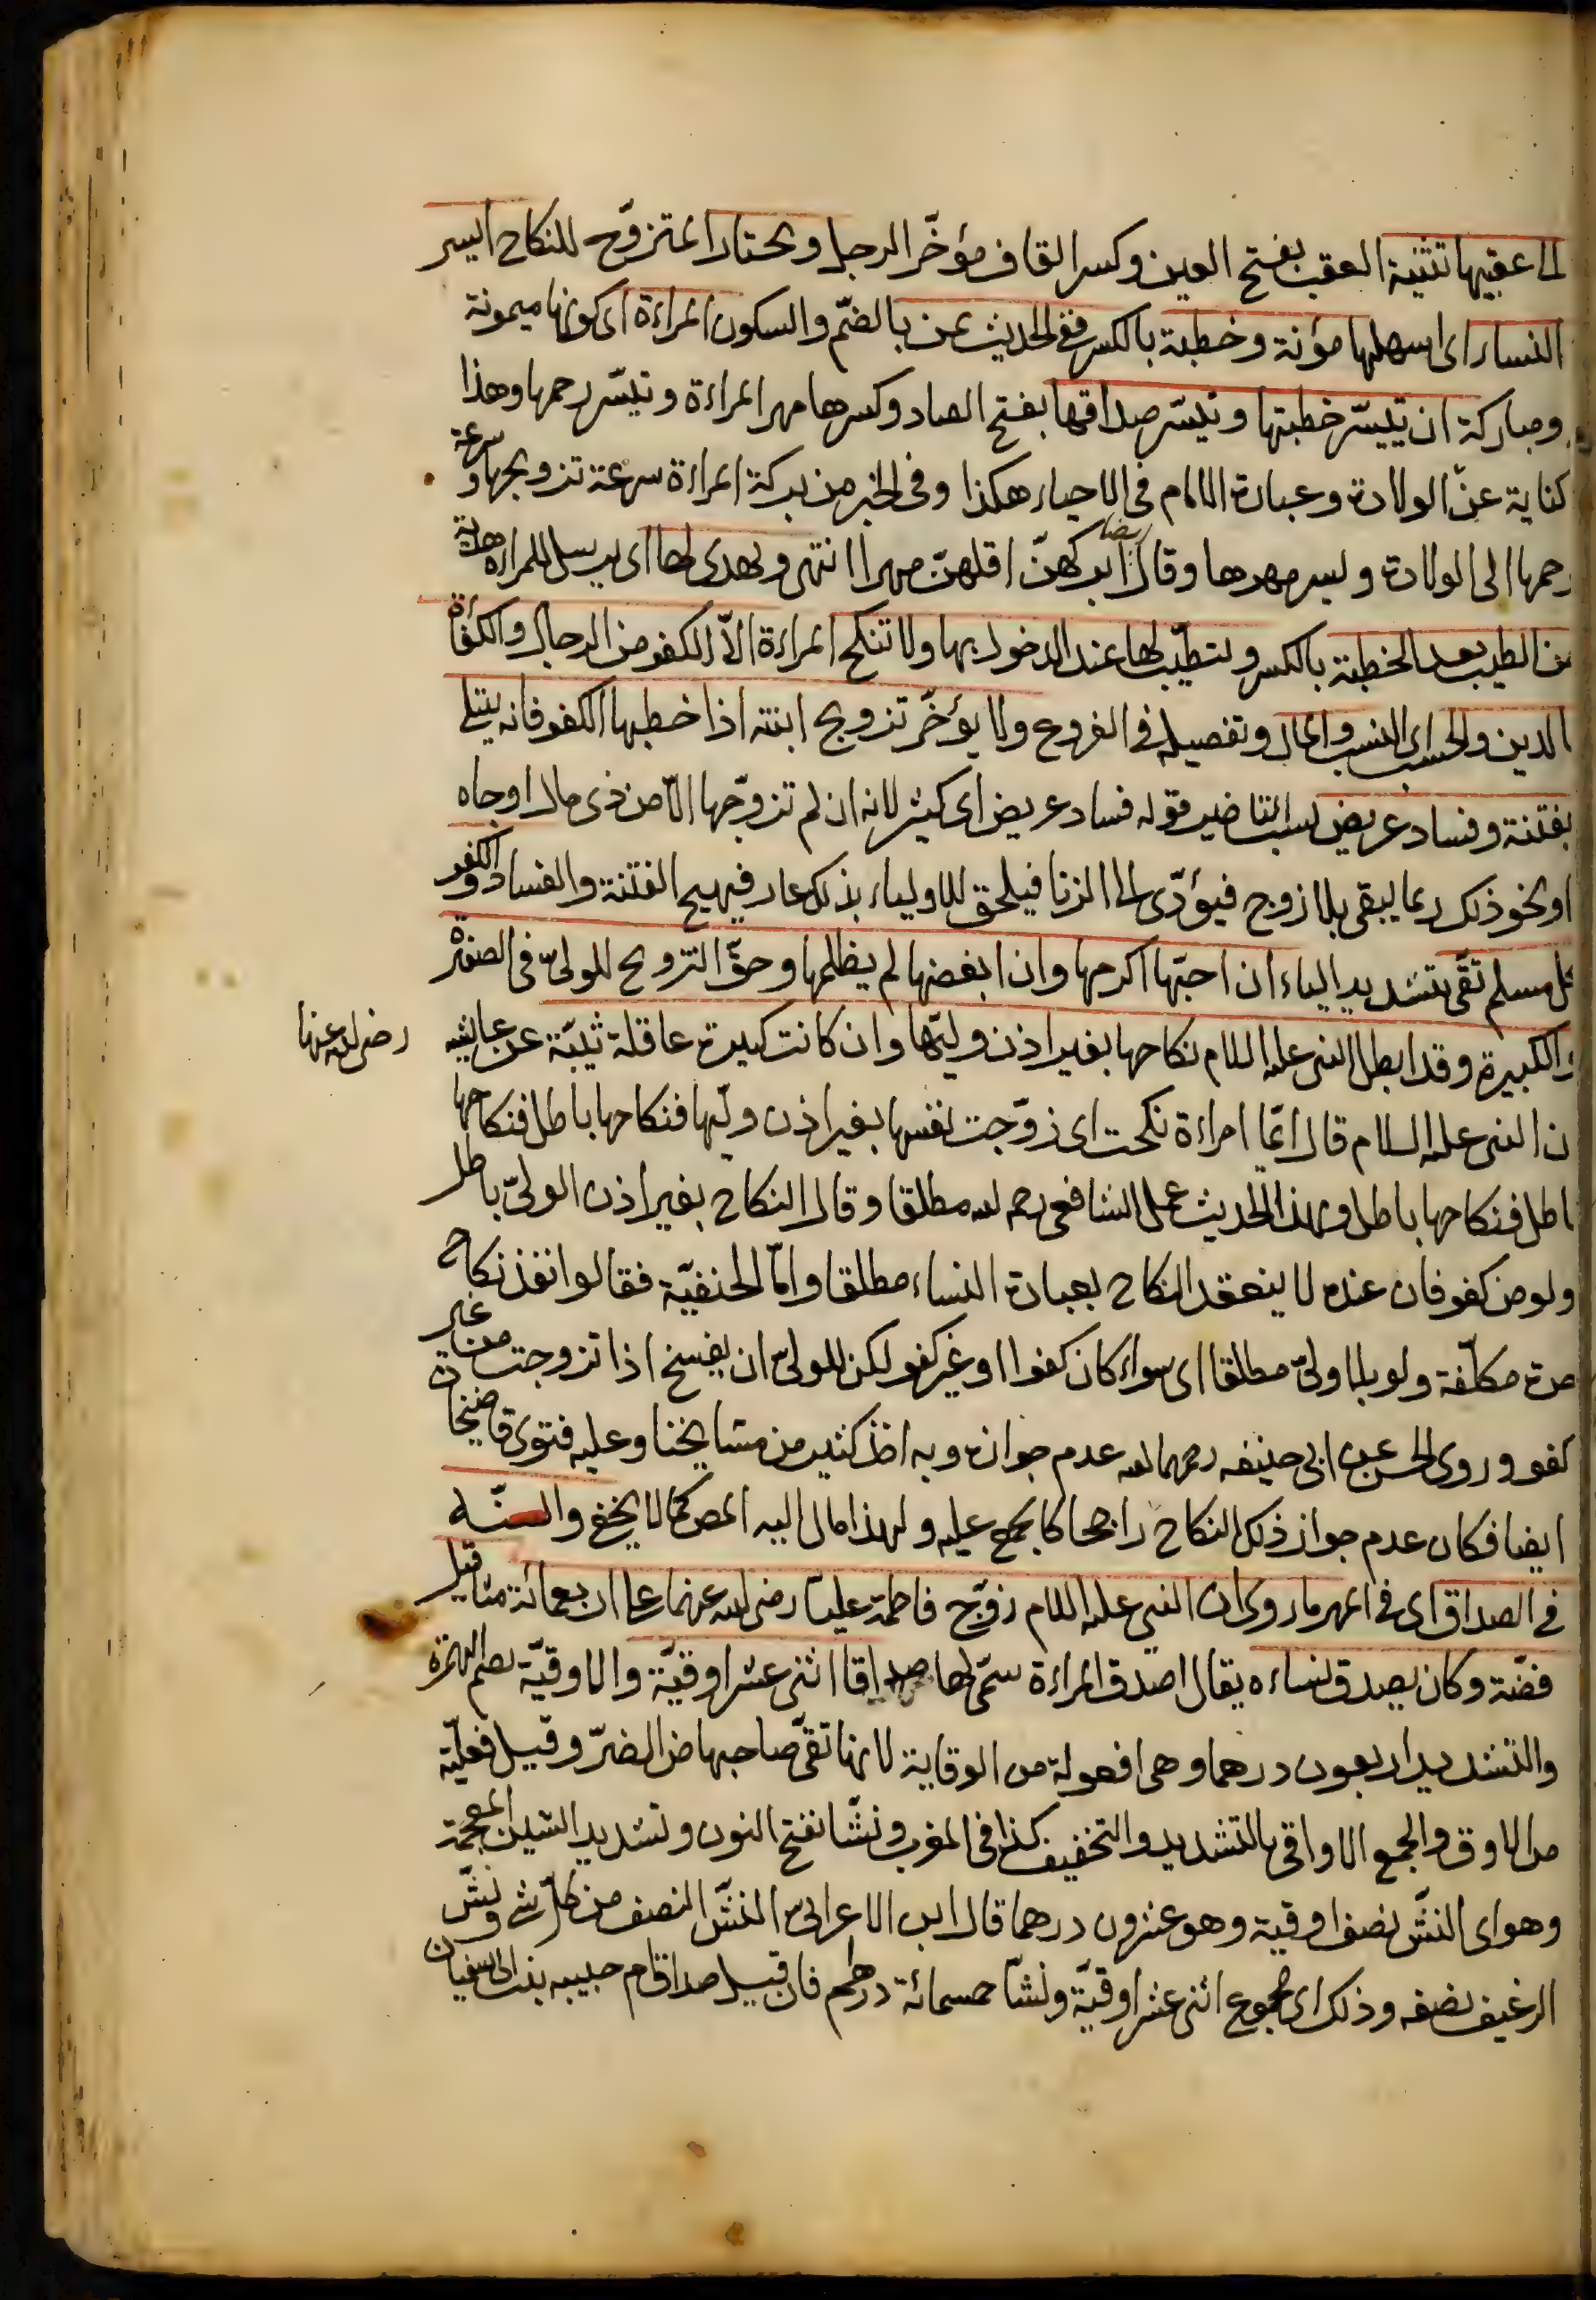 الى عقبيها تثنية العقب بفتح العين وكسر القاف مؤخّر الرجل ويختار المتزوّج للنكاح ايسر
النساء اى اسهلها مؤنة وخطبة بالكسر ففى الحديث يمن بالضمّ والسكون المراءة اى كونها ميمونة
ومباركة ان تيسّر خطبتها وتيسّر صداقها بفتح الصاد وكسرها مهر المراءة وتيسّر رحمها وهذا
كناية عن الولادة وعبارة الامام فى الاحياء هكذا وفى الخبر من بركة المراءة سرعة تزويجها وسرعة
رحمها الى الولادة ويسر مهرها وقال ايضا ابركهنّ اقلهنّ مهرا انتهى ويهدى لها اى يرسل للمراءة هدية
من الطيب بعد الخطبة بالكسر ولتطيّب لها عند الدخول بها ولا تنكح المراءة الاّ الكفو من الرجال والكفاءة
الدين والحسب اى النسب والمال وتفصيله فى الفروع ولا يؤخّر تزويج ابنته اذا خطبها الكفو فانه يبتلى
بفتنة وفساد عريض بسبب التاخير قوله فساد عريض اى كثير لانه ان لم تزوّجها الاّ من ذى مال او جاه
او نحو ذلك ربما يبقى بلا زوج فيؤدّى الى الزنا فيلحق للاولياء بذلك عار فيهيج الفتنة والفساد والكفو
كل مسلم تقىّ بتشديد الياء ان احبّها اكرمها وان ابغضها لم يظلمها وحقّ التزويج للولىّ فى الصغيرة
والكبيرة وقد ابطل النبى عليه السلام نكاحها بغير اذن وليّها وان كانت كبيرة عاقلة ثيّبة عن عايشه رضى الله عنها
ان النبى عليه السلام قال ايّما امراءة نكحت اى زوّجت نفسها بغير اذن وليّها فنكاحها باطل فنكاحها
باطل فنكاحها باطل وبهذا الحديث عمل الشافعى رحمه الله مطلقا وقال النكاح بغير اذن الولىّ باطل
ولو من كفو فان عنده لا ينعقد النكاح بعبارة النساء مطلقا وامّا الحنفيّة فقالوا نفذ نكاح
حرة مكلّفة ولو بلا ولىّ مطلقا اى سواء كان كفوا او غير كفو لكن للولىّ ان يفسخ اذا تزوجت من غير
كفو وروى الحسن عن ابى حنيفه رحمهما الله عدم جوازه وبه اخذ كثير من مشايخنا وعليه فتوى قاضيخان
ايضا فكان عدم جواز ذلك النكاح راجحا كالمجمع عليه ولهذا مال اليه المص كما لا يخفى والسنّه
فى الصداق اى فى المهر ما روى ان النبى عليه السلام زوّج فاطمة عليّا رضى الله عنهما على اربعمائة مثاقيل
فضّة وكان يصدق نساءه يقال اصدق المراءة سمّى لها صداقا اثنى عشر اوقيّة والاوقيّة بضم الهمزة
والتشديد اربعون درهما وهى افعولة من الوقاية لانها تقىّ صاحبها من الضرّ وقيل فعليّة
من الاوق والجمع الاواقى بالتشديد والتخفيف كذا فى المغرب ونشّا بفتح النون وتشديد الشين المعجمة
وهو اى النشّ نصف اوقية وهو عشرون درهما قال ابن الاعرابىّ النشّ النصف من كلّ شئ ونشّ
الرغيف نصفه وذلك اى مجموع اثنى عشر اوقيّة ونشّا خمسمائة درهم فان قيل صداق ام حبيبه بنت ابى سفيان